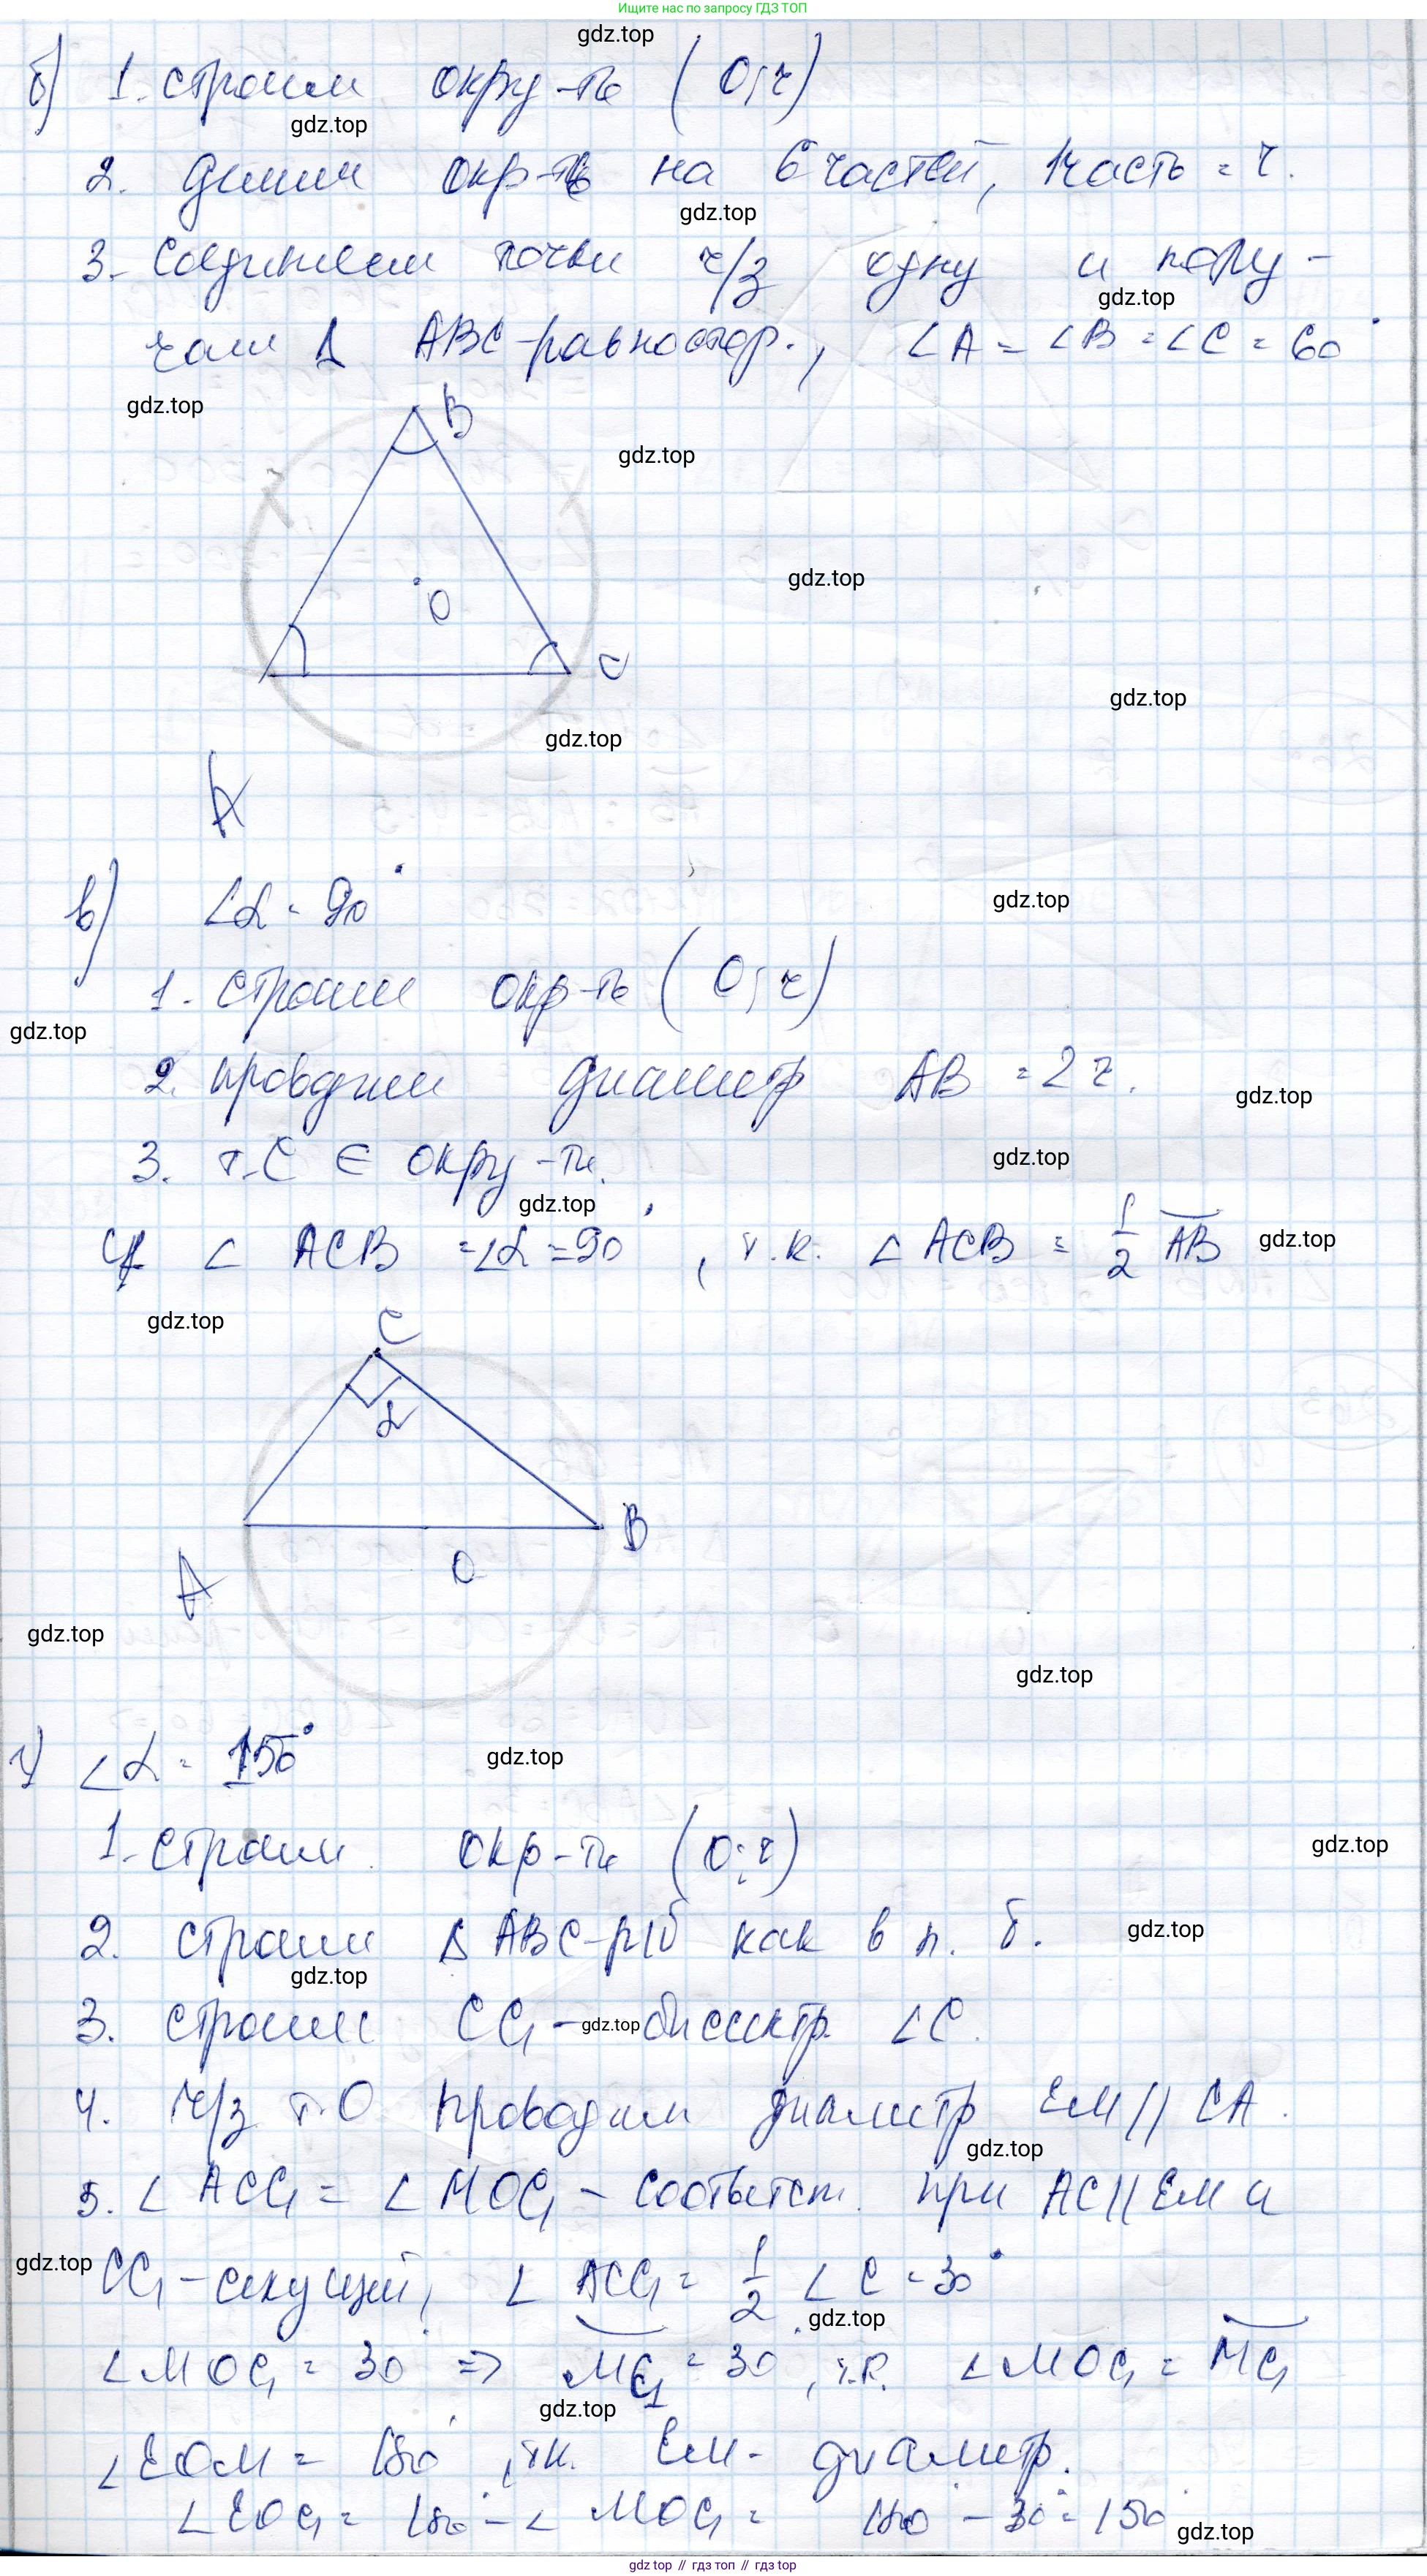 Ищите нас по запросу ГДЗ ТОП
gdz.top
б) 1. строим окру-ть (O; r)
gdz.top
2. Делим окр-ть на 6 частей, 1 часть = r.
gdz.top
3. Соединяем точки ч/з одну и полу-
gdz.top
чаем Δ ABC-равностор., ∠A = ∠B = ∠C = 60°
gdz.top
B
gdz.top
gdz.top
O
C
gdz.top
gdz.top
A
в) ∠α = 90°
gdz.top
1. Строим окр-ть (O; r)
gdz.top
2. проводим диаметр AB = 2r.
gdz.top
3. т.C ∈ окру-ти.
gdz.top
gdz.top
∠ ACB = ∠α = 90°, т.к. ∠ ACB = 1/2 AB
gdz.top
gdz.top
C
α
B
A
O
gdz.top
gdz.top
г) ∠α = 150°
gdz.top
1. Строим окр-ть (O; r)
gdz.top
2. строим Δ ABC-р/б как в п. б.
gdz.top
gdz.top
3. строим CC₁ - биссектр. ∠C.
gdz.top
4. Ч/з т.O проводим диаметр EM || CA.
gdz.top
5. ∠ ACC₁ = ∠ MOC₁ - соответст. при AC || EM и
gdz.top
CC₁ - секущей, ∠ ACC₁ = 1/2 ∠ C = 30°
gdz.top
∠MOC₁ = 30° => MC₁ = 30°, т.к. ∠MOC₁ = MC₁
gdz.top
∠EOM = 180°, т.к. EM - диаметр.
∠EOC₁ = 180° - ∠ MOC₁ = 180° - 30° = 150°
gdz.top
gdz.top // гдз топ // гдз top